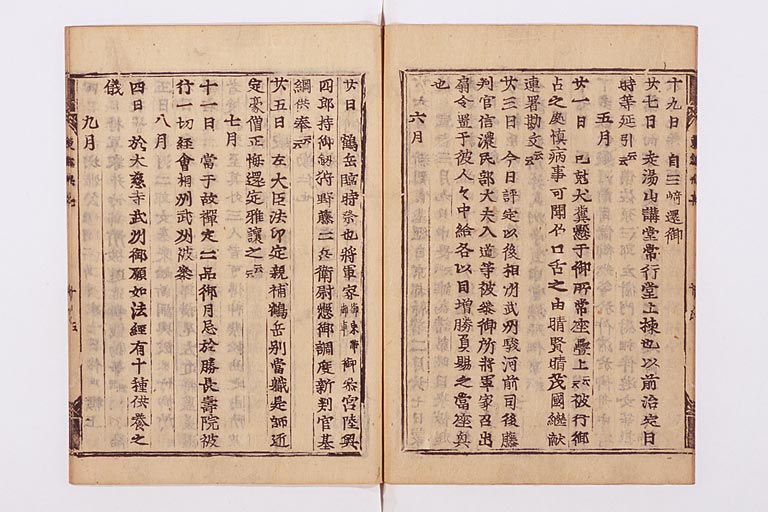 十九日 自三﨑還御
廿七日 走湯山講堂常行堂上棟也以前治定日
時等延引云云
五月
廿一日 巳尅犬糞懸于御所常座疊上云云被行御
占之處愼病事可聞食口舌之由晴賢晴茂國繼獻
連署勘文云云
廿三日 今日評定以後相州武州駿河前司後藤
判官信濃民部大夫入道等被參御所將軍家召出
扇令置于彼人々中給各以目增勝負賜之當座興
也
六月
廿日 鶴岳臨時祭也將軍家御束帶御車御參宮陸奥
四郎持御劔狩野藤二兵衛尉懸御調度新判官基
綱供奉云云
廿五日 左大臣法印定親補鶴岳別當職是師匠
定豪僧正悔還定雅讓之云云
七月
十一日 當于故禪定二品御月忌於勝長壽院被
行一切經會相州武州被參
八月
四日 於大慈寺武州御願如法經有十種供養之
儀
九月